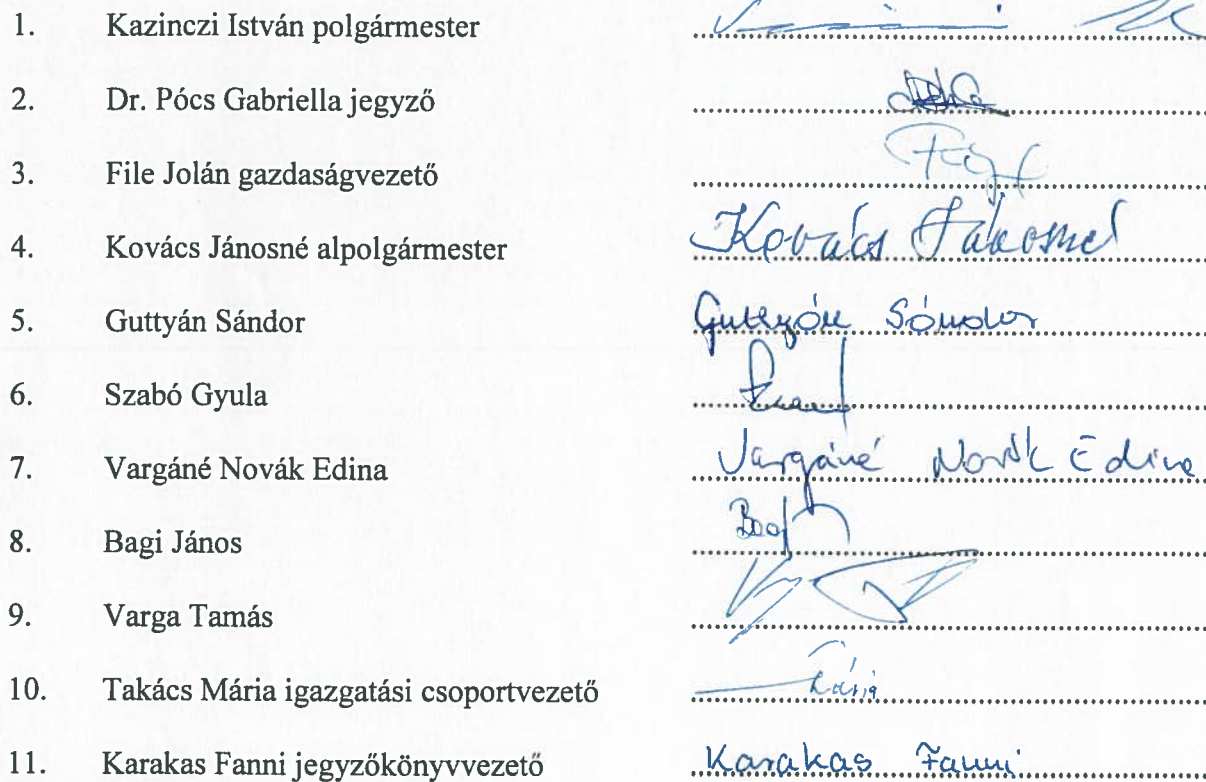 1. Kazinczi István polgármester
2. Dr. Pócs Gabriella jegyző
3. File Jolán gazdaságvezető
4. Kovács Jánosné alpolgármester Kovács Jánosné
5. Guttyán Sándor Guttyán Sándor
6. Szabó Gyula
7. Vargáné Novák Edina Vargáné Novák Edina
8. Bagi János
9. Varga Tamás
10. Takács Mária igazgatási csoportvezető
11. Karakas Fanni jegyzőkönyvvezető Karakas Fanni